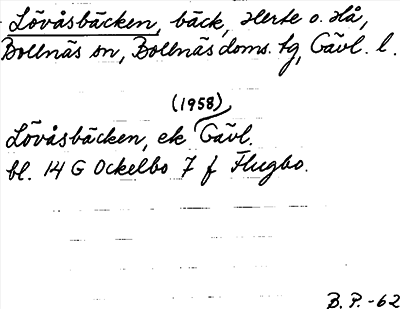 Lövåsbäcken, bäck, Herte o. Hå,
Bollnäs sn, Bollnäs doms. tg, Gävl. l.
(1958)
Lövåsbäcken, ek Gävl.
bl. 14 G Ockelbo 7 f Flugbo.
B. P. -62